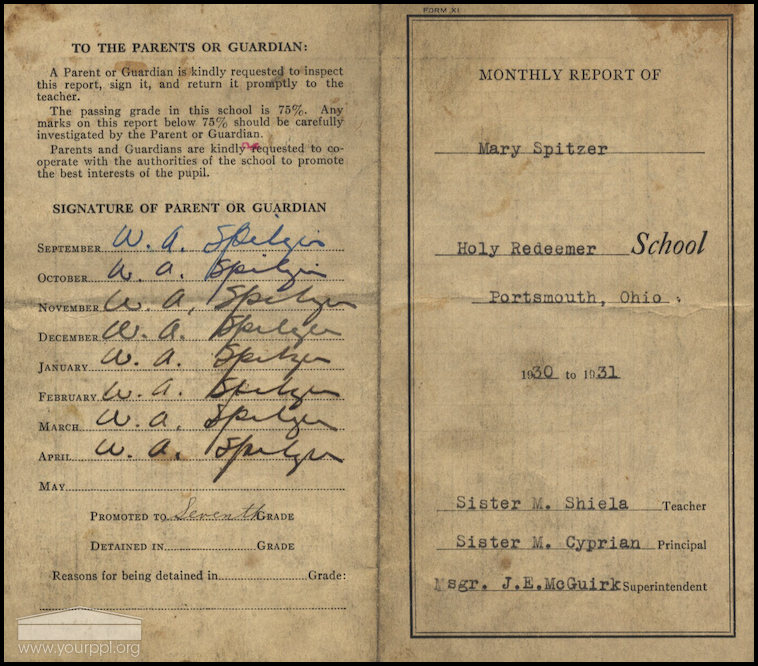 TO THE PARENTS OR GUARDIAN:
A Parent or Guardian is kindly requested to inspect
this report, sign it, and return it promptly to the
teacher.
The passing grade in this school is 75%. Any
marks on this report below 75% should be carefully
investigated by the Parent or Guardian.
Parents and Guardians are kindly requested to co-
operate with the authorities of the school to promote
the best interests of the pupil.
SIGNATURE OF PARENT OR GUARDIAN
SEPTEMBER W. A. Spitzer
OCTOBER W. A. Spitzer
NOVEMBER W. A. Spitzer
DECEMBER W. A. Spitzer
JANUARY W. A. Spitzer
FEBRUARY W. A. Spitzer
MARCH W. A. Spitzer
APRIL W. A. Spitzer
MAY
PROMOTED TO Seventh GRADE
DETAINED IN GRADE
Reasons for being detained in Grade:
www.yourppl.org
FORM XI
MONTHLY REPORT OF
Mary Spitzer
Holy Redeemer School
Portsmouth, Ohio.
1930 to 1931
Sister M. Shiela Teacher
Sister M. Cyprian Principal
Msgr. J.E.McGuirk Superintendent